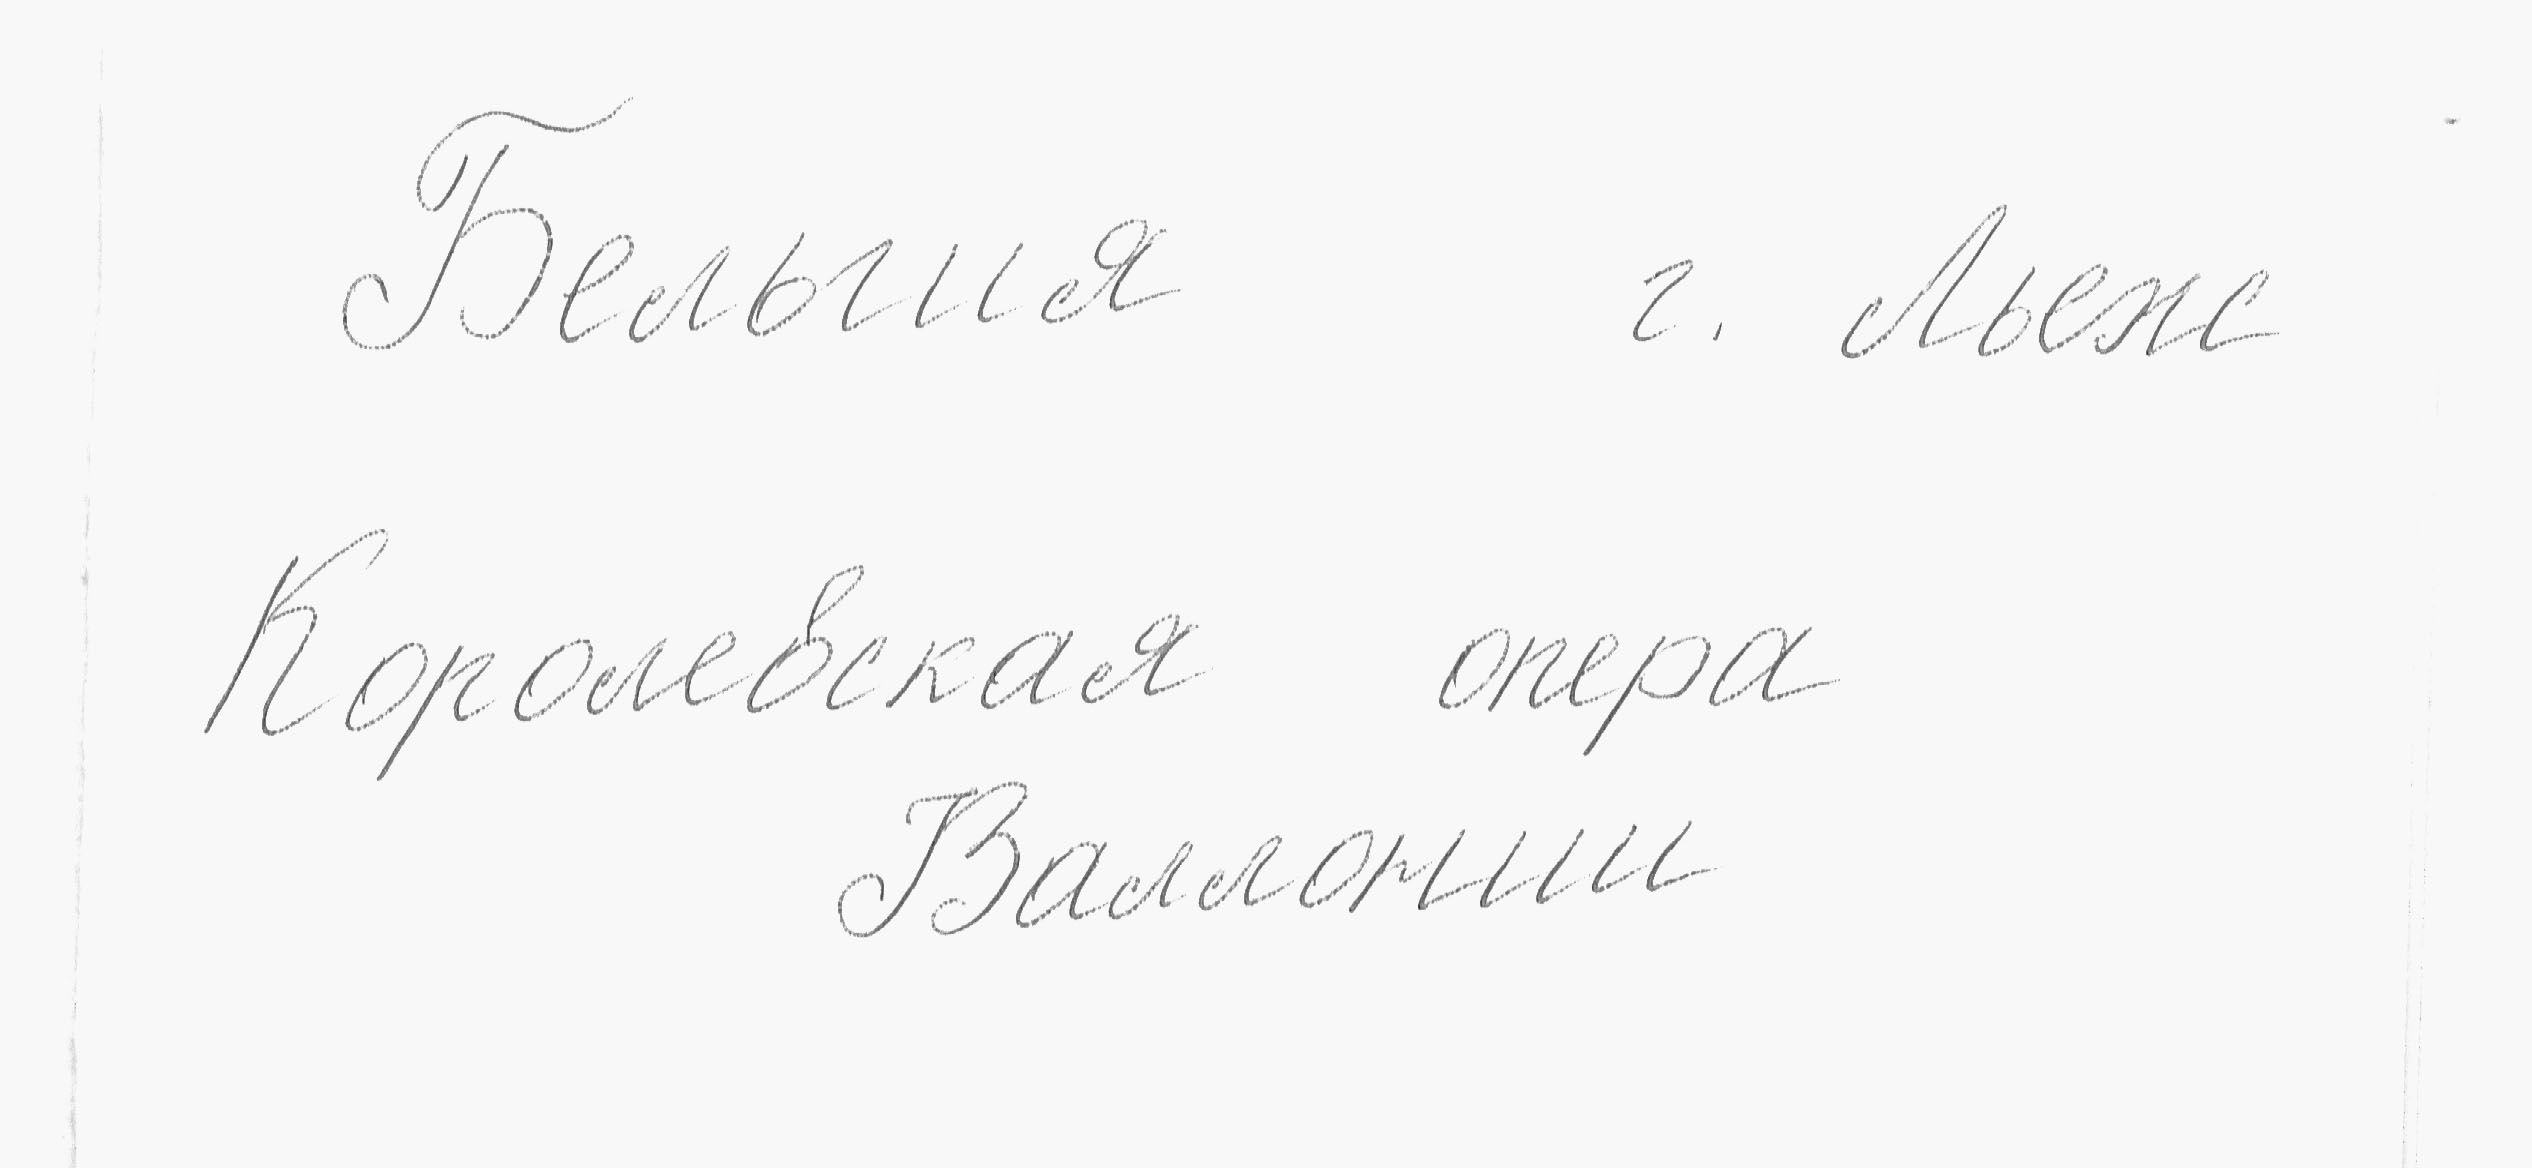 Бельгия г. Льеж
Королевская опера
Валлонии